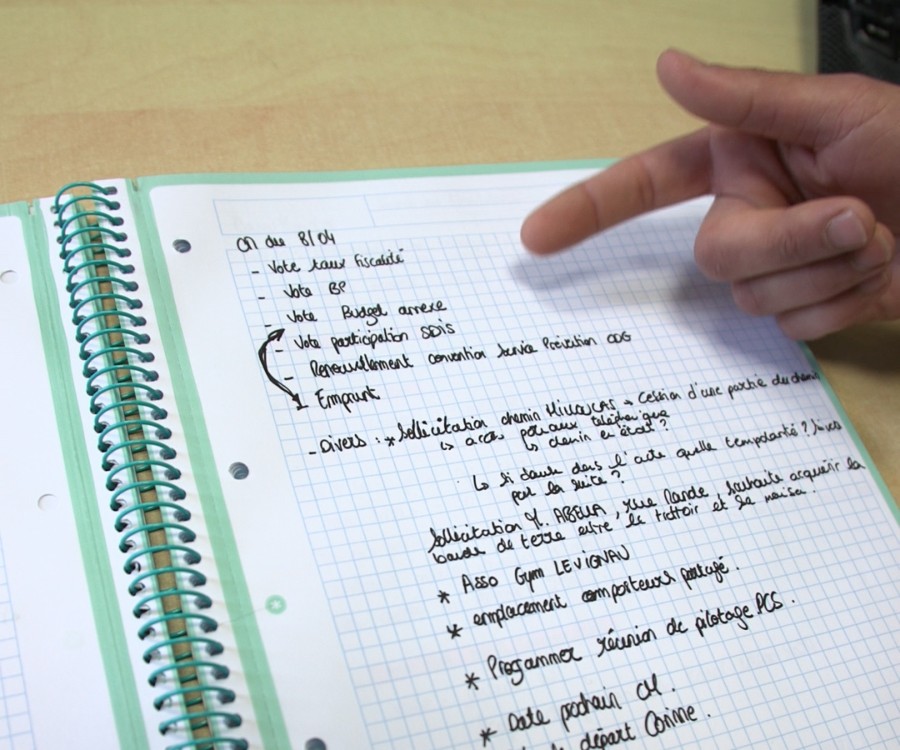 CM du 8/04
- Vote taux fiscalité
- Vote BP
- Vote Budget annexe
- Vote participation SDIS
- Renouvellement convention Service Prévention CDG
- Emprunt
- Divers : * Sollicitation chemin → Cession d'une partie du chemin
↳ avec poteaux téléphonique
↳ chemin en état ?
↳ Si clause dans l'acte quelle temporalité ?
par la suite ?
Sollicitation M. ABELLA, rue , souhaite acquérir la
bande de terre entre le trottoir et sa maison.
* Asso Gym LEVIGNAU
* emplacement composteurs partagé.
* Programmer réunion de pilotage PCS.
* Date prochain CM.
départ Corinne.